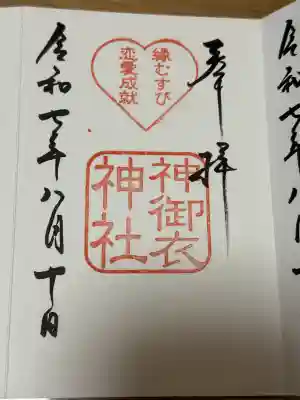 奉拝
縁むすび
恋愛成就
神御衣
神社
令和七年八月十日
令和七年八月十